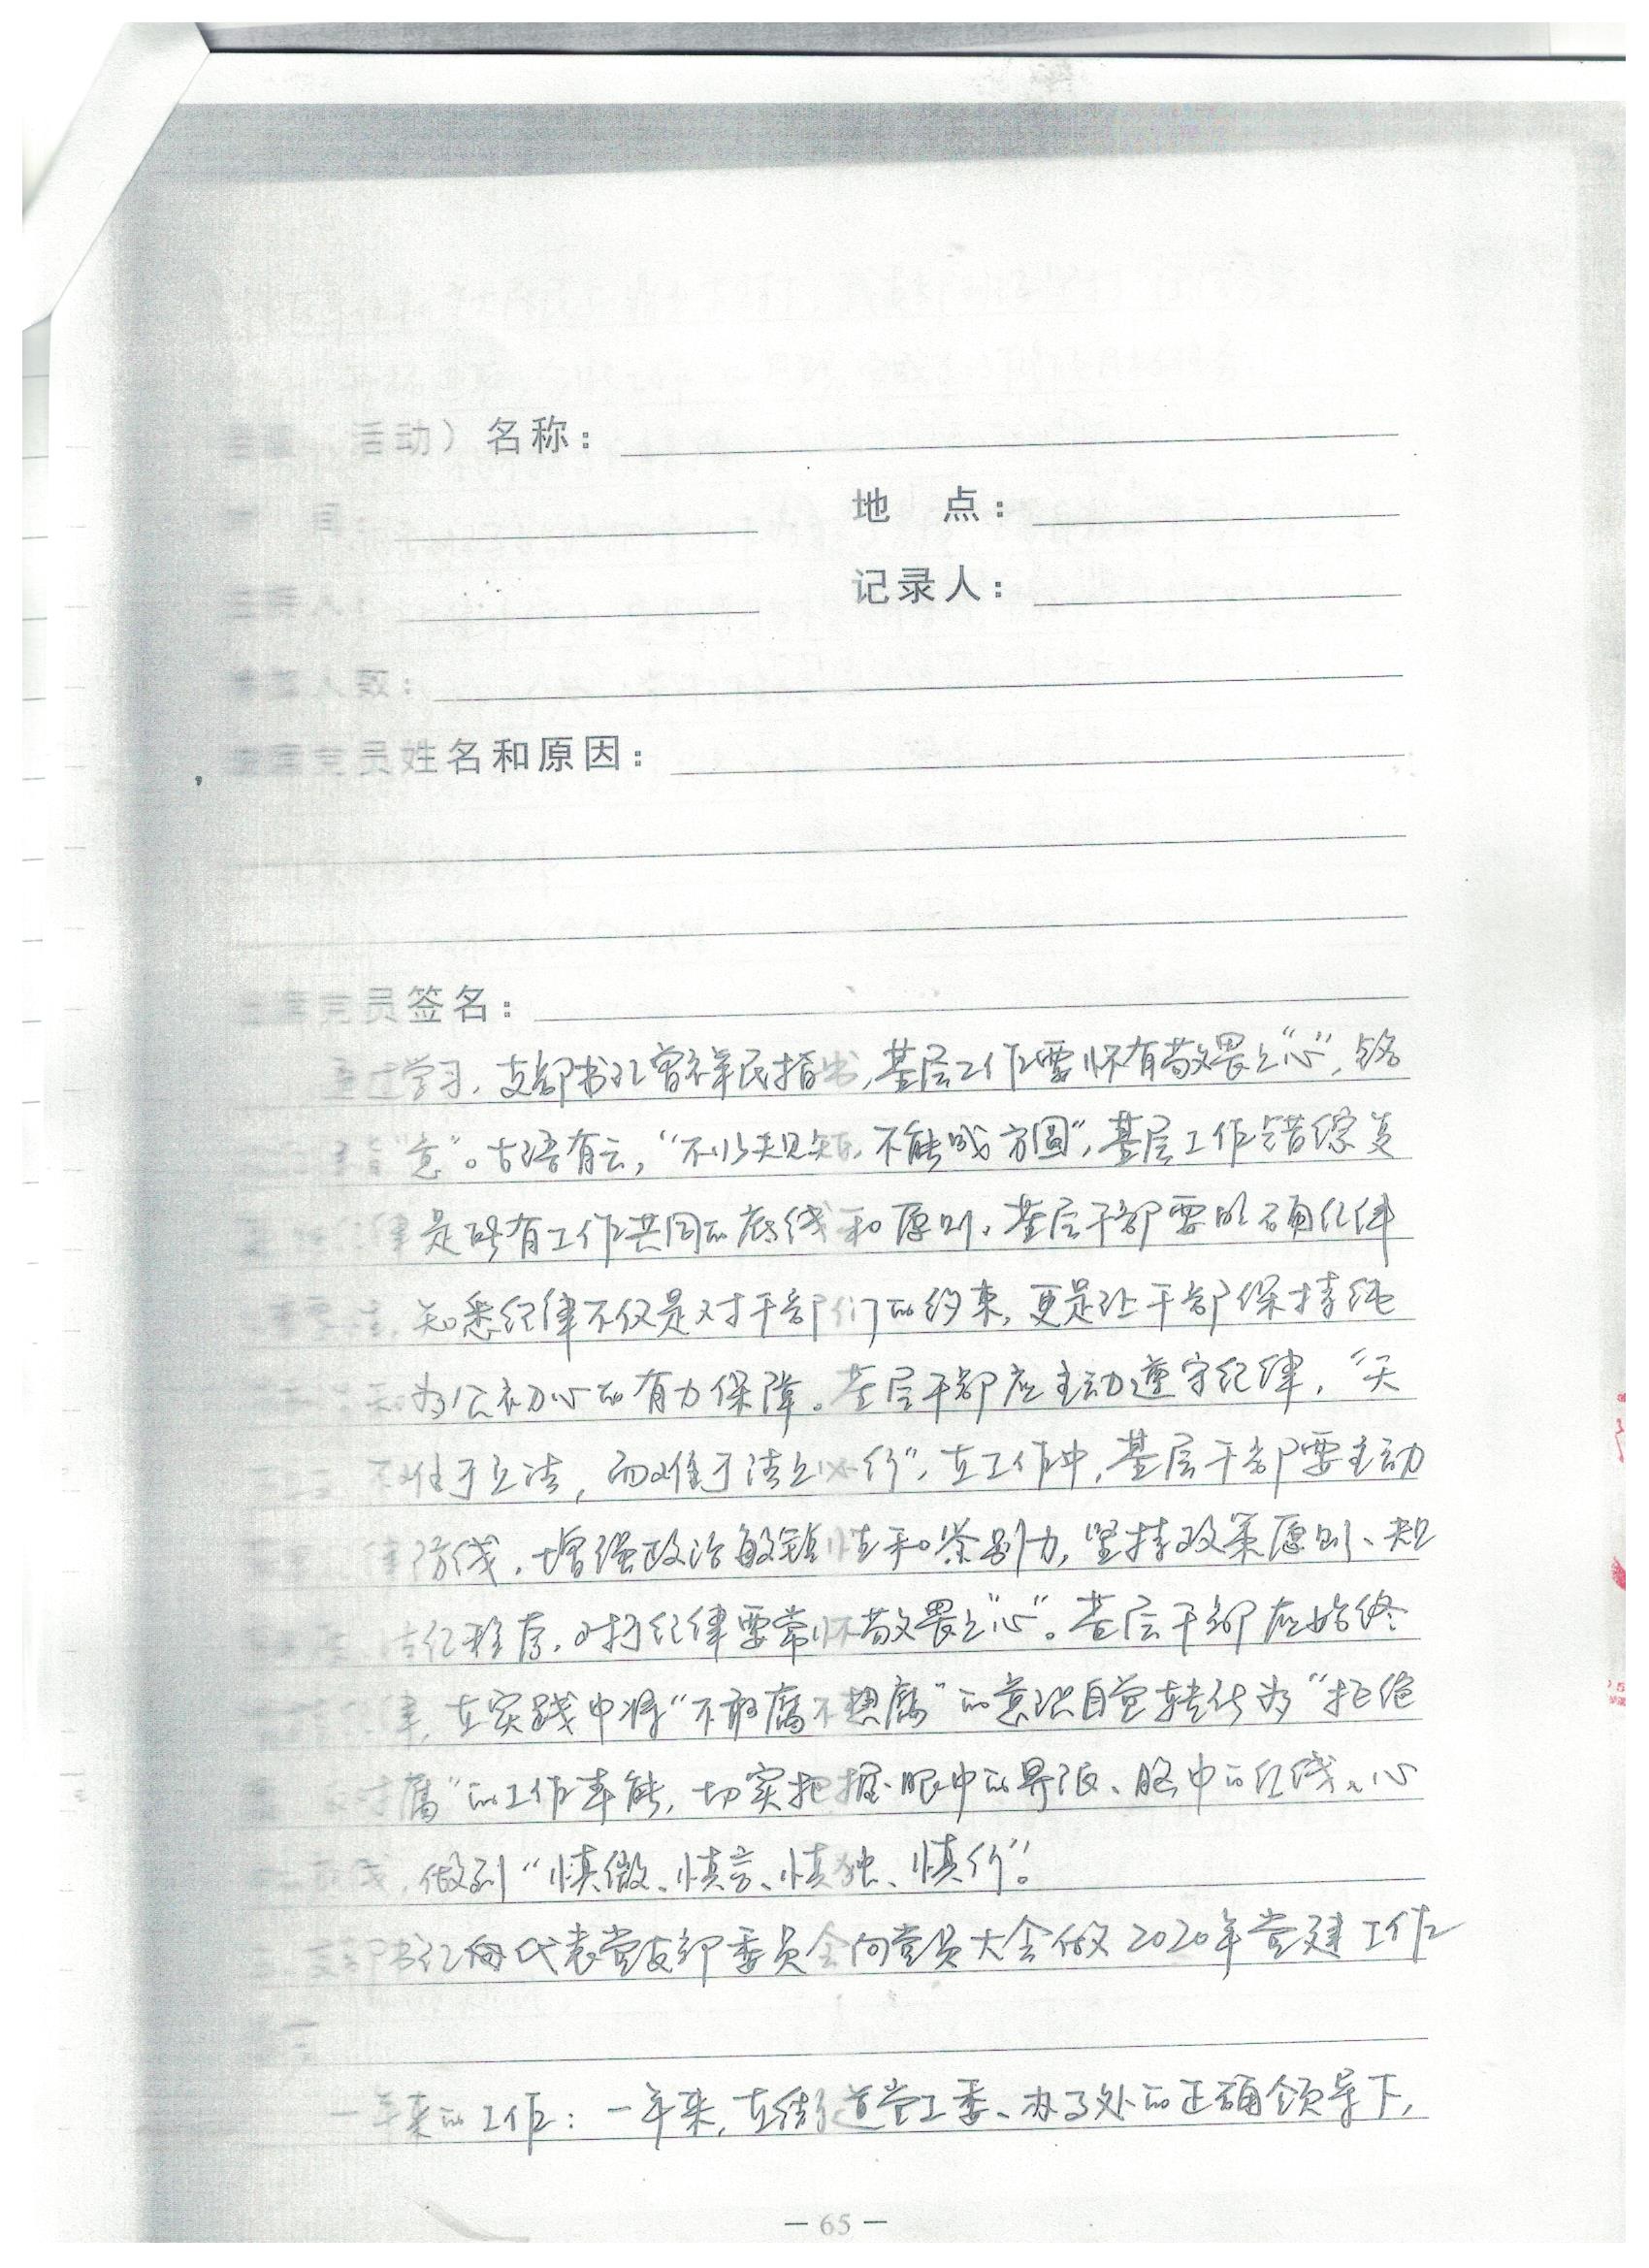 活动）名称：
间： 地 点：
主持人： 记录人：
人数：
党员姓名和原因：
党员签名：
通过学习，支部书记曾祥民指出，基层工作要怀有敬畏之“心”，铭
“意”。古语有云，“不以规矩，不能成方圆”，基层工作错综复
律是所有工作共同的底线和原则，基层干部要明确纪律
知悉纪律不仅是对干部们的约束，更是让干部保持纯
为公初心的有力保障。基层干部应主动遵守纪律，“天
不难于立法，而难于法之必行”，在工作中，基层干部要主动
律防线，增强政治敏锐性和鉴别力，坚持政策原则、规
法纪程序，对于纪律要常怀敬畏之“心”。基层干部应始终
律，在实践中将“不敢腐不想腐”的意识自觉转化为“拒绝
腐”的工作本能，切实把握眼中的界限、脑中的红线、心
，做到“慎微、慎言、慎独、慎行”。
支部书记代表党支部委员会向党员大会做2020年党建工作
一年来的工作：一年来，在街道党工委、办事处的正确领导下，
— 65 —